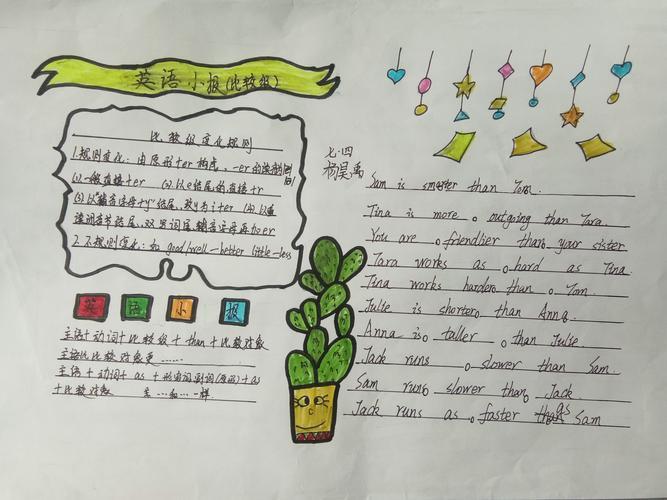 英语小报(比较级)
比较级变化规则
1.规则变化:由原形+er构成,-er的添加规则
(1)一般直接+er (2)以e结尾的直接+r
(3)以"辅音字母+y"结尾,改y为i+er (4)以重
读闭音节结尾,双写词尾辅音字母再加er
2.不规则变化:如 good/well—better little—less
英 语 小 报
主语+动词+比较级+than+比较对象
主语比比较对象更……
主语+动词+as+形容词副词(原形)+as
+比较对象 主…和…一样.
七.四
杨昊禹
Sam is smarter than Tom.
Tina is more outgoing than Tara
You are friendlier than your sister
Tara works as hard as Tina.
Tina works harder than Tom.
Julie is shorter than Anna.
Anna is taller than Julie.
Jack runs slower than Sam.
Sam runs slower than Jack.
Jack runs as faster as Sam